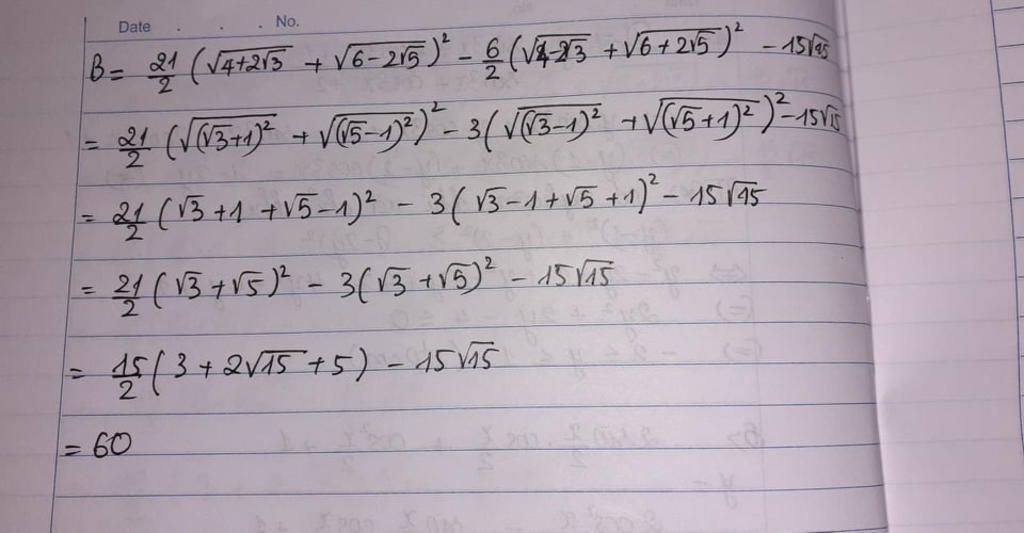 Date . . . No.
B = 21/2 (√(4+2√3) + √(6-2√5))² - 6/2 (√(4-2√3) + √(6+2√5))² - 15√15
= 21/2 (√((√3+1)²) + √((√5-1)²))² - 3(√((√3-1)²) + √((√5+1)²))² - 15√15
= 21/2 (√3 + 1 + √5 - 1)² - 3(√3 - 1 + √5 + 1)² - 15√15
= 21/2 (√3 + √5)² - 3(√3 + √5)² - 15√15
= 15/2 (3 + 2√15 + 5) - 15√15
= 60